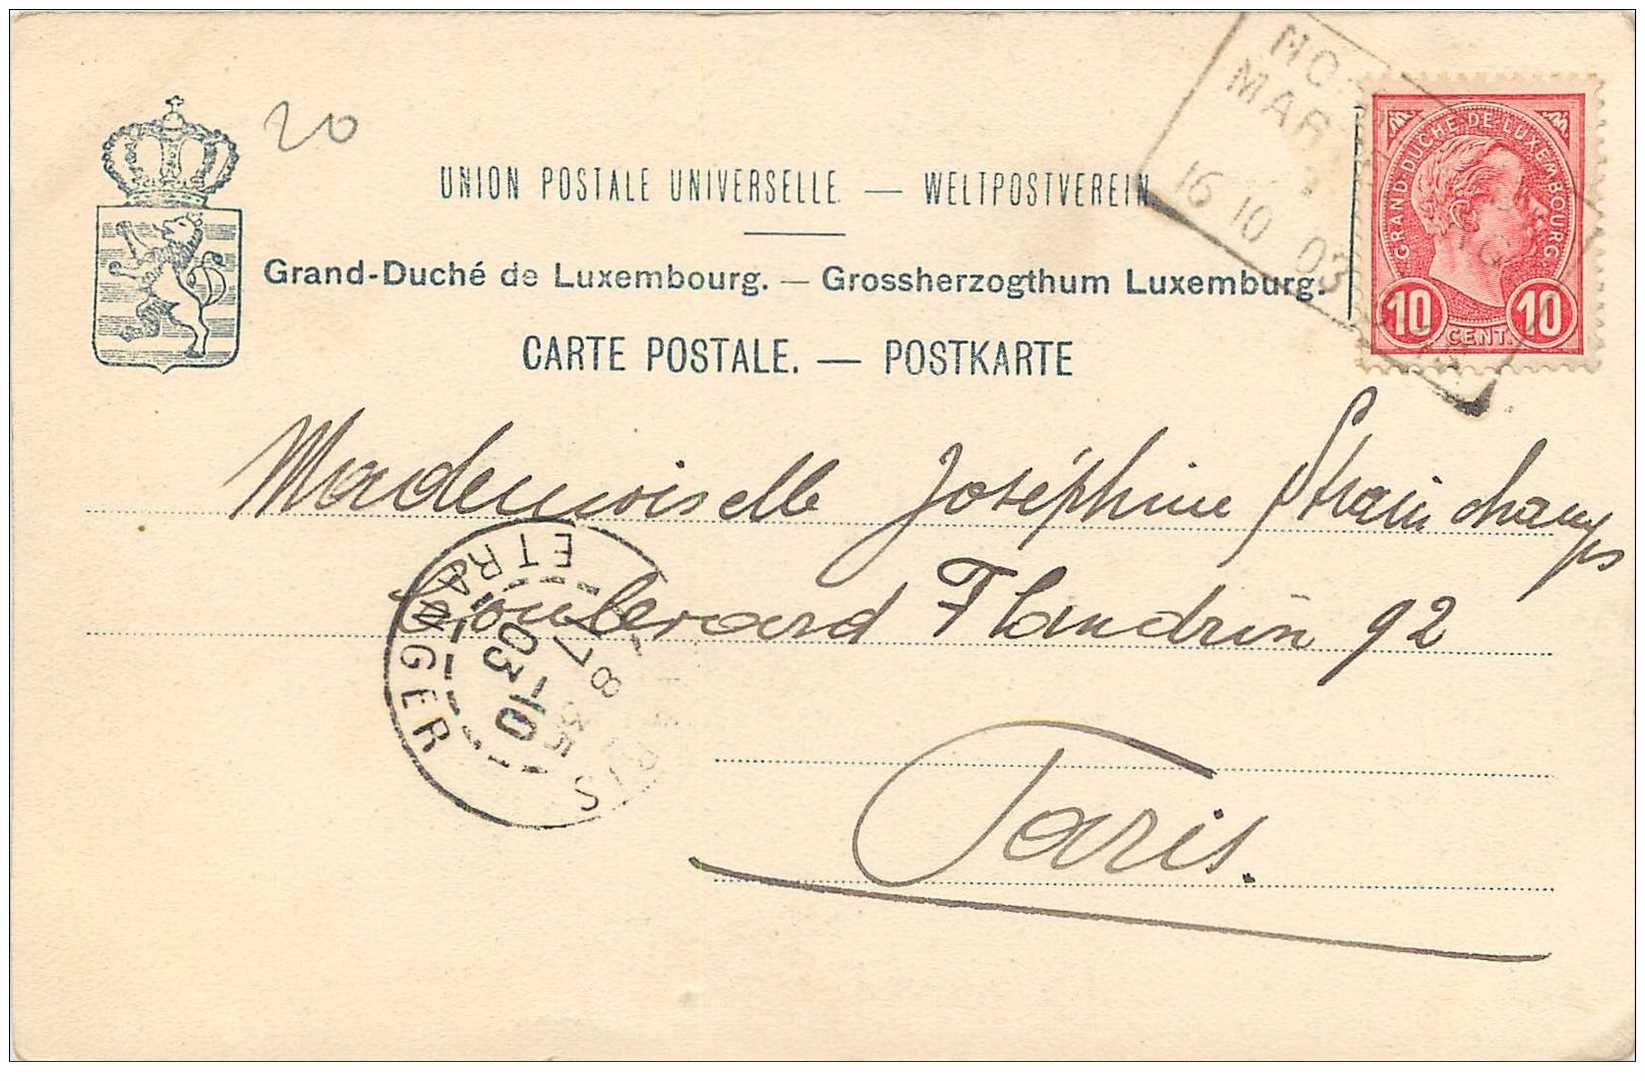 20
UNION POSTALE UNIVERSELLE. — WELTPOSTVEREIN
Grand-Duché de Luxembourg. — Grossherzogthum Luxemburg.
CARTE POSTALE. — POSTKARTE
16 10 03
GRAND-DUCHÉ DE LUXEMBOURG
10 CENT. 10
Mademoiselle Joséphine Strainchamps
boulevard Flandrin 92
Paris.
PARIS
ETRANGER
10
03